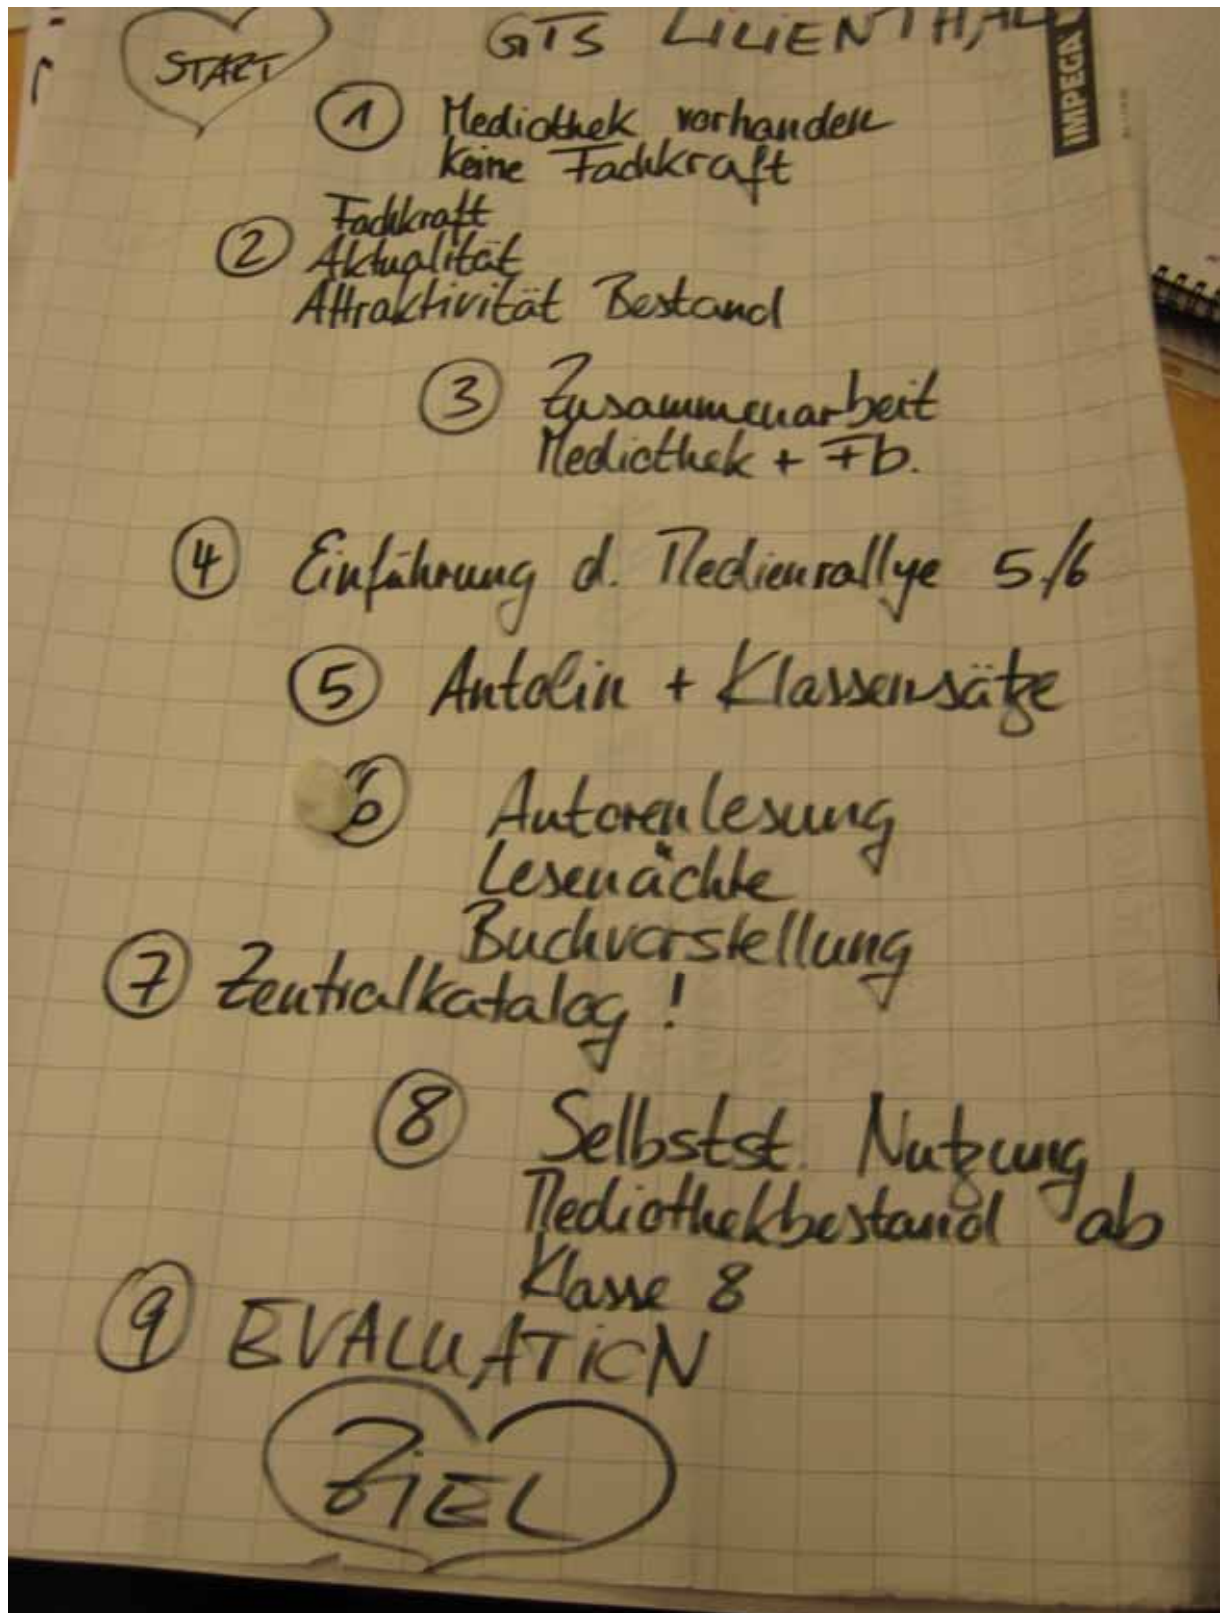 START
GTS LILIENTHAL
IMPEGA
1 Mediothek vorhanden
keine Fachkraft
Fachkraft
2 Aktualität
Attraktivität Bestand
3 Zusammenarbeit
Mediothek + Fb.
4 Einführung d. Medienrallye 5./6
5 Antolin + Klassensätze
6 Autorenlesung
Lesenächte
Buchvorstellung
7 Zentralkatalog!
8 Selbstst. Nutzung
Mediothekbestand ab
Klasse 8
9 EVALUATION
ZIEL